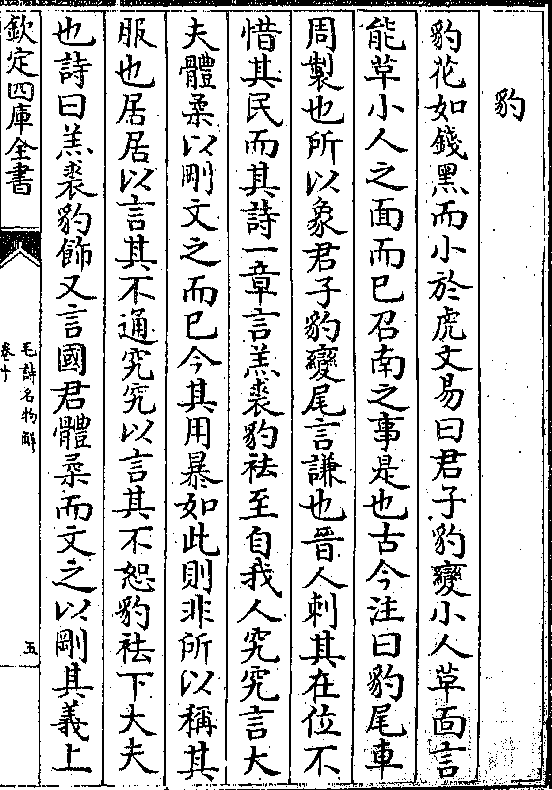 豹
豹花如錢黑而小於虎文易曰君子豹變小人革面言
能革小人之面而已召南之事是也古今注曰豹尾車
周製也所以象君子豹變尾言謙也晉人刺其在位不
惜其民而其詩一章言羔裘豹袪至自我人究究言大
夫體柔以剛文之而已今其用暴如此則非所以稱其
服也居居以言其不通究究以言其不恕豹袪下大夫
也詩曰羔裘豹飾又言國君體柔而文之以剛其義上
欽定四庫全書
毛詩名物解
卷十
五